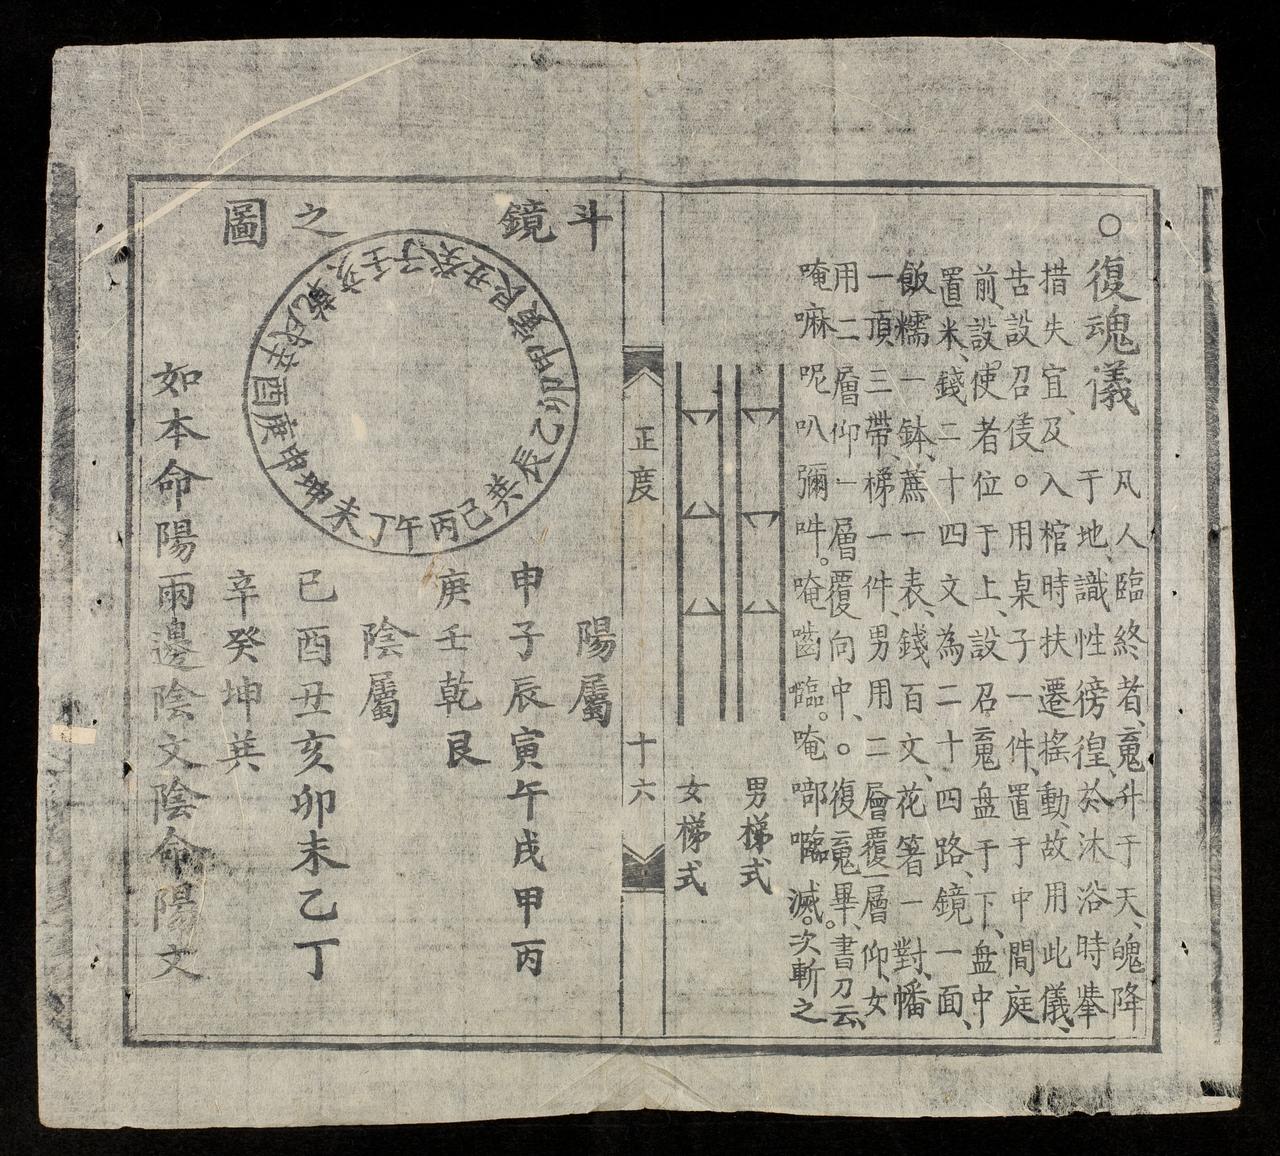 ○復魂儀
凡人臨終者、䰟升于天、魄降
于地、識性徬徨、於沐浴時、擧
措失宜、及入棺時扶遷搖動、故用此儀、
告設召䰟。用桌子一件、置于中間庭
前、設使者位于上、設召䰟盘于下、盘中
置米、錢二十四文為二十四路、鏡一面、
飯糯一鉢、蔗一表、錢百文、花箸一對、幡
一頂三帶、梯一件、男用二層覆一層仰、女
用二層仰一層覆向中、○復䰟畢、書刀云、
唵嘛呢叭彌吽。唵嚙㘋。唵啷㘋滅。次斬之
男梯式
女梯式
正度
十六
斗鏡之圖
壬子癸丑艮寅甲卯乙辰巽巳丙午丁未坤申庚酉辛戌乾亥
陽屬
申子辰寅午戌甲丙
庚壬乾艮
陰屬
巳酉丑亥卯未乙丁
辛癸坤巽
如本命陽兩邊陰文陰命陽文